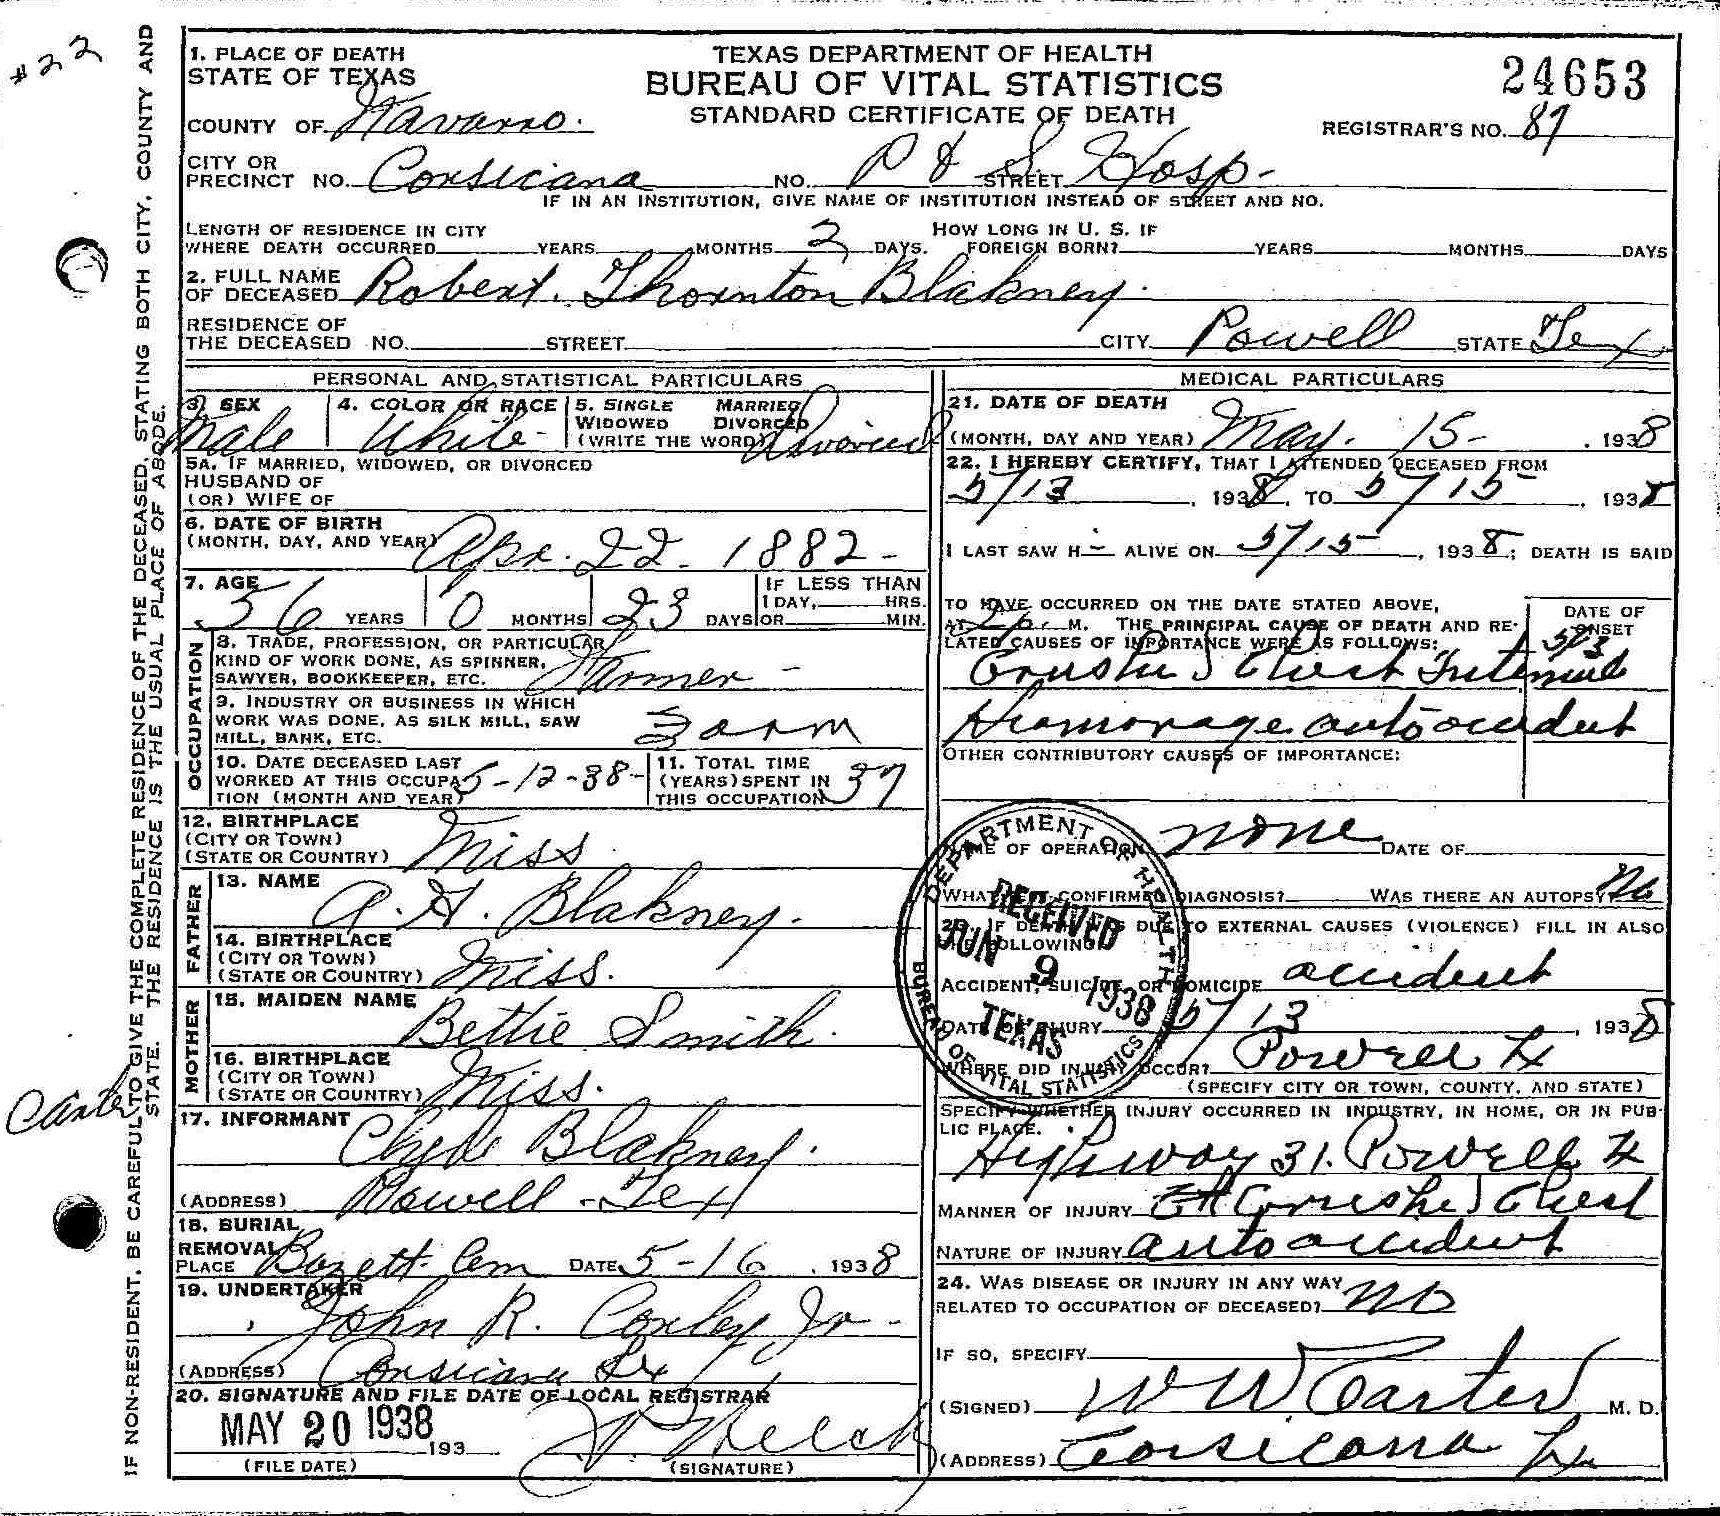 #22
1. PLACE OF DEATH
STATE OF TEXAS
TEXAS DEPARTMENT OF HEALTH
BUREAU OF VITAL STATISTICS
STANDARD CERTIFICATE OF DEATH
24653
COUNTY OF Navarro.
REGISTRAR'S NO. 87
CITY OR
PRECINCT NO. Corsicana NO. P & S STREET Hosp-
IF IN AN INSTITUTION, GIVE NAME OF INSTITUTION INSTEAD OF STREET AND NO.
LENGTH OF RESIDENCE IN CITY
WHERE DEATH OCCURRED YEARS MONTHS 2 DAYS.
HOW LONG IN U. S. IF
FOREIGN BORN? YEARS MONTHS DAYS
2. FULL NAME
OF DECEASED Robert. Thornton Blakney.
RESIDENCE OF
THE DECEASED NO. STREET CITY Powell STATE Tex
PERSONAL AND STATISTICAL PARTICULARS
3. SEX
Male
4. COLOR OR RACE
White-
5. SINGLE MARRIED
WIDOWED DIVORCED
(WRITE THE WORD) Divorced
5A. IF MARRIED, WIDOWED, OR DIVORCED
HUSBAND OF
(OR) WIFE OF
6. DATE OF BIRTH
(MONTH, DAY, AND YEAR) Apr. 22. 1882-
7. AGE
56 YEARS 0 MONTHS 23 DAYS
IF LESS THAN
1 DAY, HRS.
OR MIN.
OCCUPATION
8. TRADE, PROFESSION, OR PARTICULAR
KIND OF WORK DONE, AS SPINNER,
SAWYER, BOOKKEEPER, ETC. Farmer-
9. INDUSTRY OR BUSINESS IN WHICH
WORK WAS DONE, AS SILK MILL, SAW
MILL, BANK, ETC. Farm
10. DATE DECEASED LAST
WORKED AT THIS OCCUPA- 5-12-38-
TION (MONTH AND YEAR)
11. TOTAL TIME
(YEARS) SPENT IN
THIS OCCUPATION 37
12. BIRTHPLACE
(CITY OR TOWN)
(STATE OR COUNTRY) Miss
FATHER
13. NAME
A. H. Blakney.
14. BIRTHPLACE
(CITY OR TOWN)
(STATE OR COUNTRY) Miss.
MOTHER
15. MAIDEN NAME
Bettie Smith.
16. BIRTHPLACE
(CITY OR TOWN)
(STATE OR COUNTRY) Miss.
17. INFORMANT
Clyde Blakney.
(ADDRESS) Powell-Tex
18. BURIAL
REMOVAL
PLACE Bazett Cem DATE 5-16, 1938
19. UNDERTAKER
John R. Corley Jr-
(ADDRESS) Corsicana Tex
20. SIGNATURE AND FILE DATE OF LOCAL REGISTRAR
MAY 20 1938
193
(FILE DATE) (SIGNATURE)
MEDICAL PARTICULARS
21. DATE OF DEATH
(MONTH, DAY AND YEAR) May. 15-, 1938
22. I HEREBY CERTIFY, THAT I ATTENDED DECEASED FROM
5/13, 1938, TO 5/15, 1938
I LAST SAW H- ALIVE ON 5/15, 1938; DEATH IS SAID
TO HAVE OCCURRED ON THE DATE STATED ABOVE,
AT 2p. M. THE PRINCIPAL CAUSE OF DEATH AND RE-
LATED CAUSES OF IMPORTANCE WERE AS FOLLOWS:
DATE OF
ONSET
5/13
Crushed Chest Internal
Hemorrage auto accident
OTHER CONTRIBUTORY CAUSES OF IMPORTANCE:
NAME OF OPERATION none DATE OF
WHAT TEST CONFIRMED DIAGNOSIS? WAS THERE AN AUTOPSY? No
23. IF DEATH WAS DUE TO EXTERNAL CAUSES (VIOLENCE) FILL IN ALSO
THE FOLLOWING:
ACCIDENT, SUICIDE, OR HOMICIDE accident
DATE OF INJURY 5/13, 1938
WHERE DID INJURY OCCUR? Powell Tx
(SPECIFY CITY OR TOWN, COUNTY, AND STATE)
SPECIFY WHETHER INJURY OCCURRED IN INDUSTRY, IN HOME, OR IN PUB-
LIC PLACE.
Highway 31. Powell Tx
MANNER OF INJURY Crushed Chest
NATURE OF INJURY auto accident
24. WAS DISEASE OR INJURY IN ANY WAY
RELATED TO OCCUPATION OF DECEASED? No
IF SO, SPECIFY
(SIGNED) W W Carter M. D.
(ADDRESS) Corsicana Tx
DEPARTMENT OF HEALTH
RECEIVED
JUN 9 1938
TEXAS
BUREAU OF VITAL STATISTICS
IF NON-RESIDENT, BE CAREFUL TO GIVE THE COMPLETE RESIDENCE OF THE DECEASED, STATING BOTH CITY, COUNTY AND
STATE. THE RESIDENCE IS THE USUAL PLACE OF ABODE.
Carter